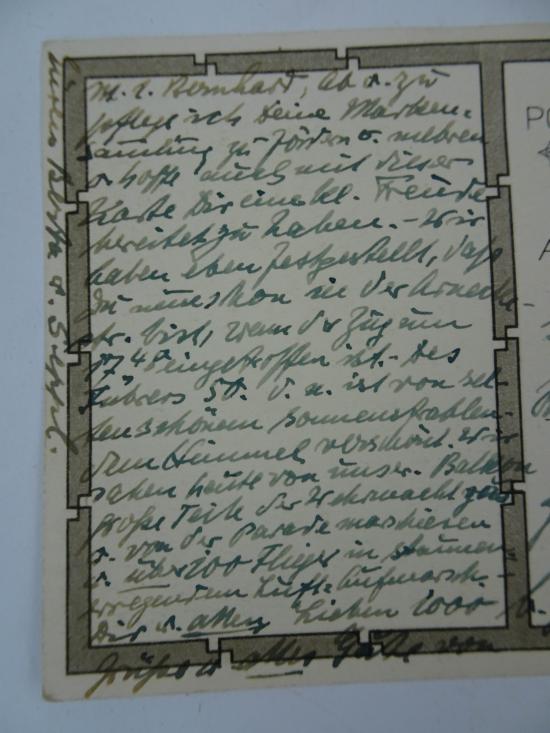 m. l. Bernhard, ab u. zu
pflege ich Deine Marken-
samlung zu fördern u. mehren
u. hoffe auch mit dieser
Karte Dir eine kl. Freude
bereitet zu haben. - Wir
haben eben festgestellt, daß
Du nun schon in der
str. bist, wenn der Zug um
17 45 eingetroffen ist. - Des
Führers 50. ist von sel-
ten schönem Sonnenstrahlen-
dem Himmel verschönt. Wir
sahen heute von unser. Balkon
große Teile der Wehrmacht
u. von der Parade maschieren
u. über 200 Flieger in staunen
erregendem Luft-Aufmarsch. -
Dir u. allen Lieben 1000
Grüße u. alles Gute von
PO
A